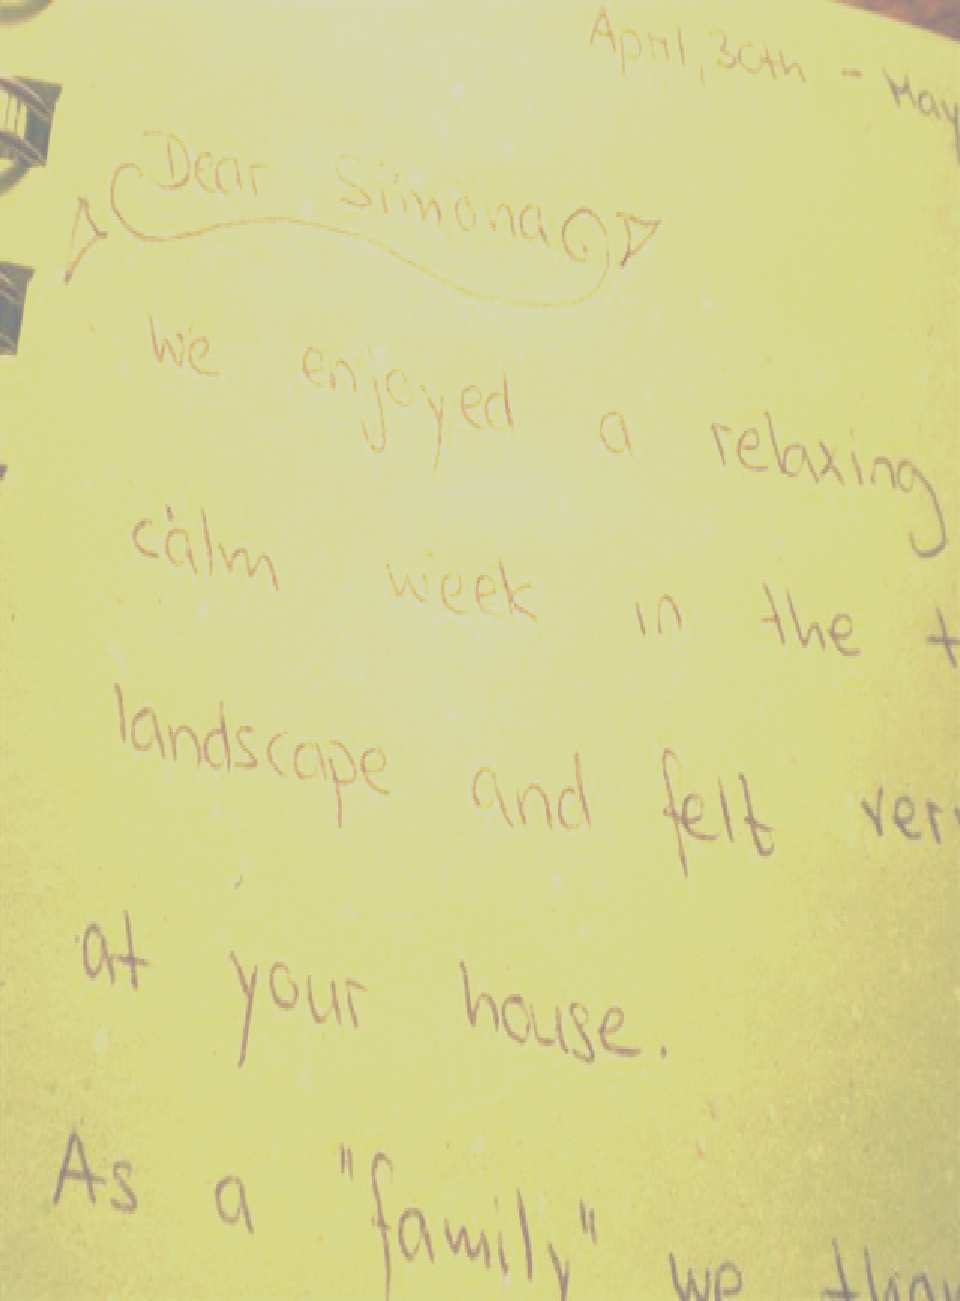 April, 30th - May
Dear Simona
We enjoyed a relaxing
calm week in the
landscape and felt
at your house.
As a "family" we